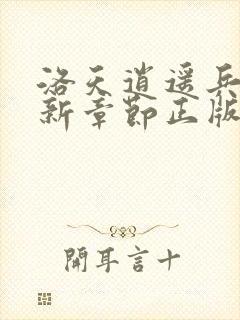 洛天逍遥兵
新章節正版
開耳言十